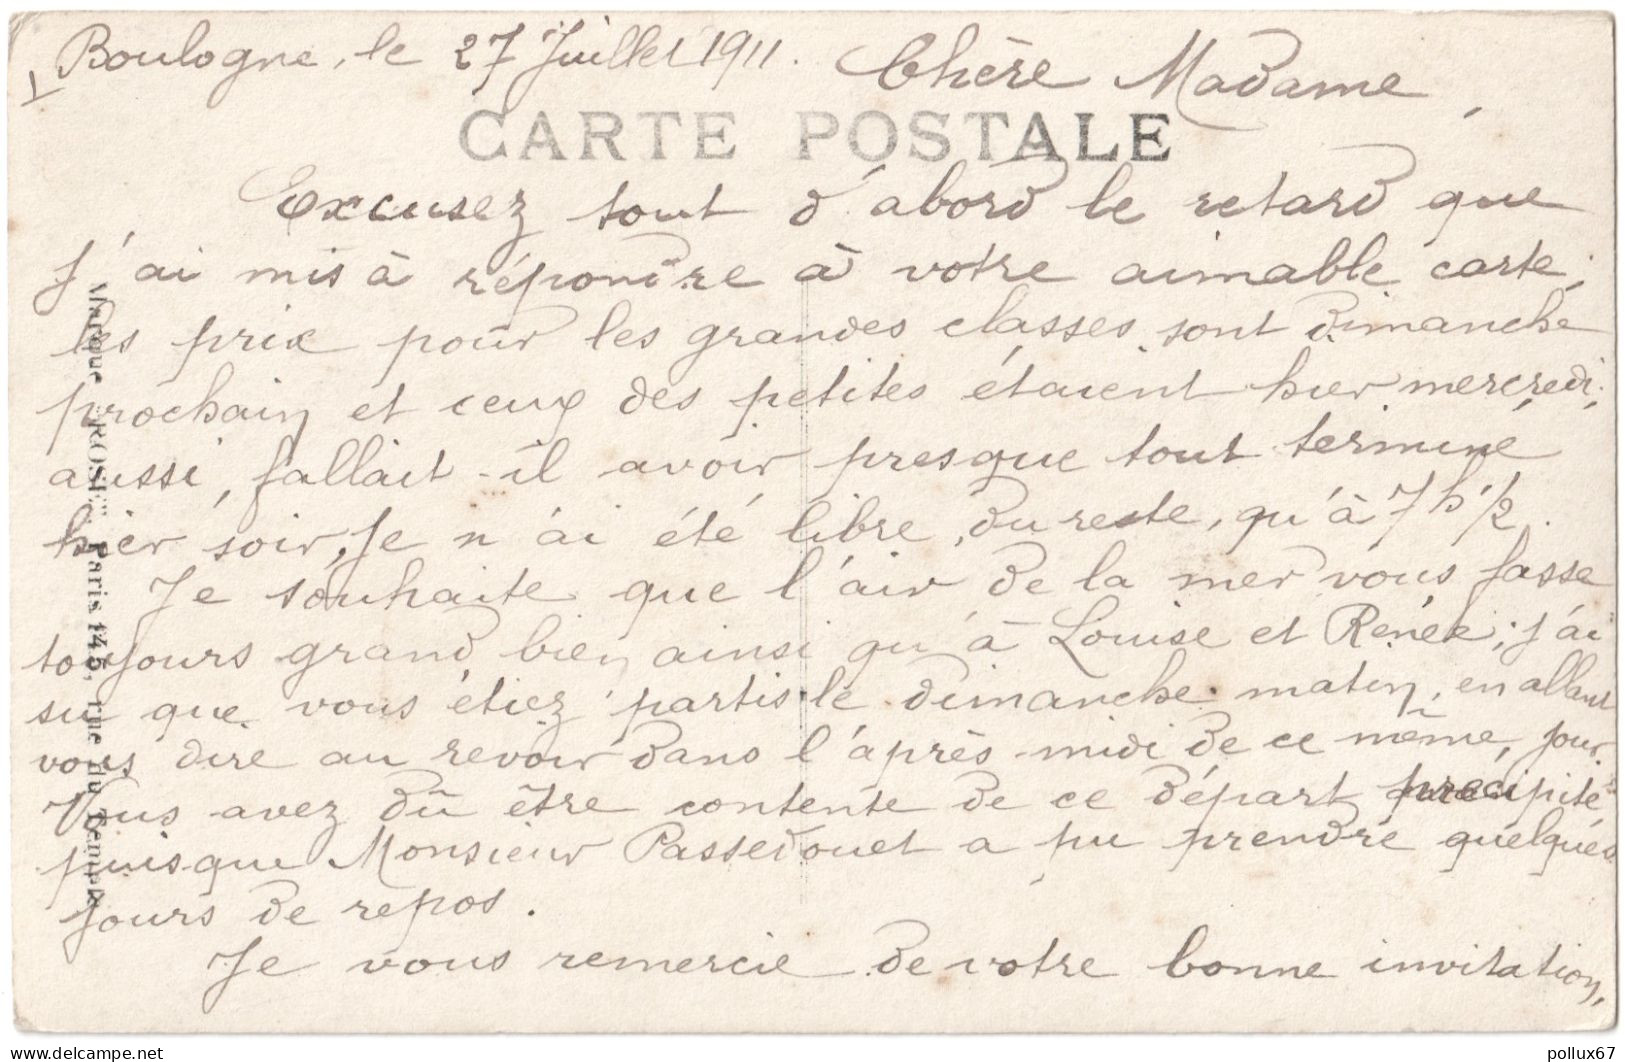 Boulogne, le 27 Juillet 1911. Chère Madame,
CARTE POSTALE
Excusez tout d'abord le retard que
j'ai mis à répondre à votre aimable carte;
les prix pour les grandes classes sont dimanche
prochain et ceux des petites étaient hier mercredi;
aussi, fallait-il avoir presque tout terminé
hier soir, Je n'ai été libre, du reste, qu'à 7h 1/2.
Je souhaite que l'air de la mer vous fasse
toujours grand bien ainsi qu'à Louise et Renée; j'ai
su que vous étiez partis le dimanche matin, en allant
vous dire au revoir dans l'après-midi de ce même jour.
Vous avez dû être contente de ce départ précipité
puisque Monsieur Passedouet a pu prendre quelques
jours de repos.
Je vous remercie de votre bonne invitation,
Marque "ROSE" Paris 145, rue du Temple
delcampe.net
pollux67